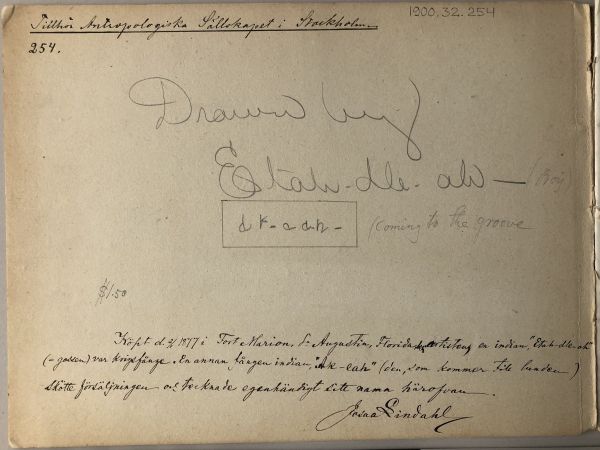 1900.32.254
Tillhör Antropologiska Sällskapet i Stockholm.
254.
Drawn by
Etah-dle-ah — (Boy)
dk-a-ah-
(Coming to the groove
$1.50
Köpt d. 1877 i Fort Marion, St Augustin, Florida. Artisten, en indian, "Etah-dle-ah"
(= gossen) var krigsfånge. En annan fången indian, "Ak-eah" (den, som kommer till lunden)
skötte försäljningen och tecknade egenhändigt sitt namn härofvan.
Josua Lindahl